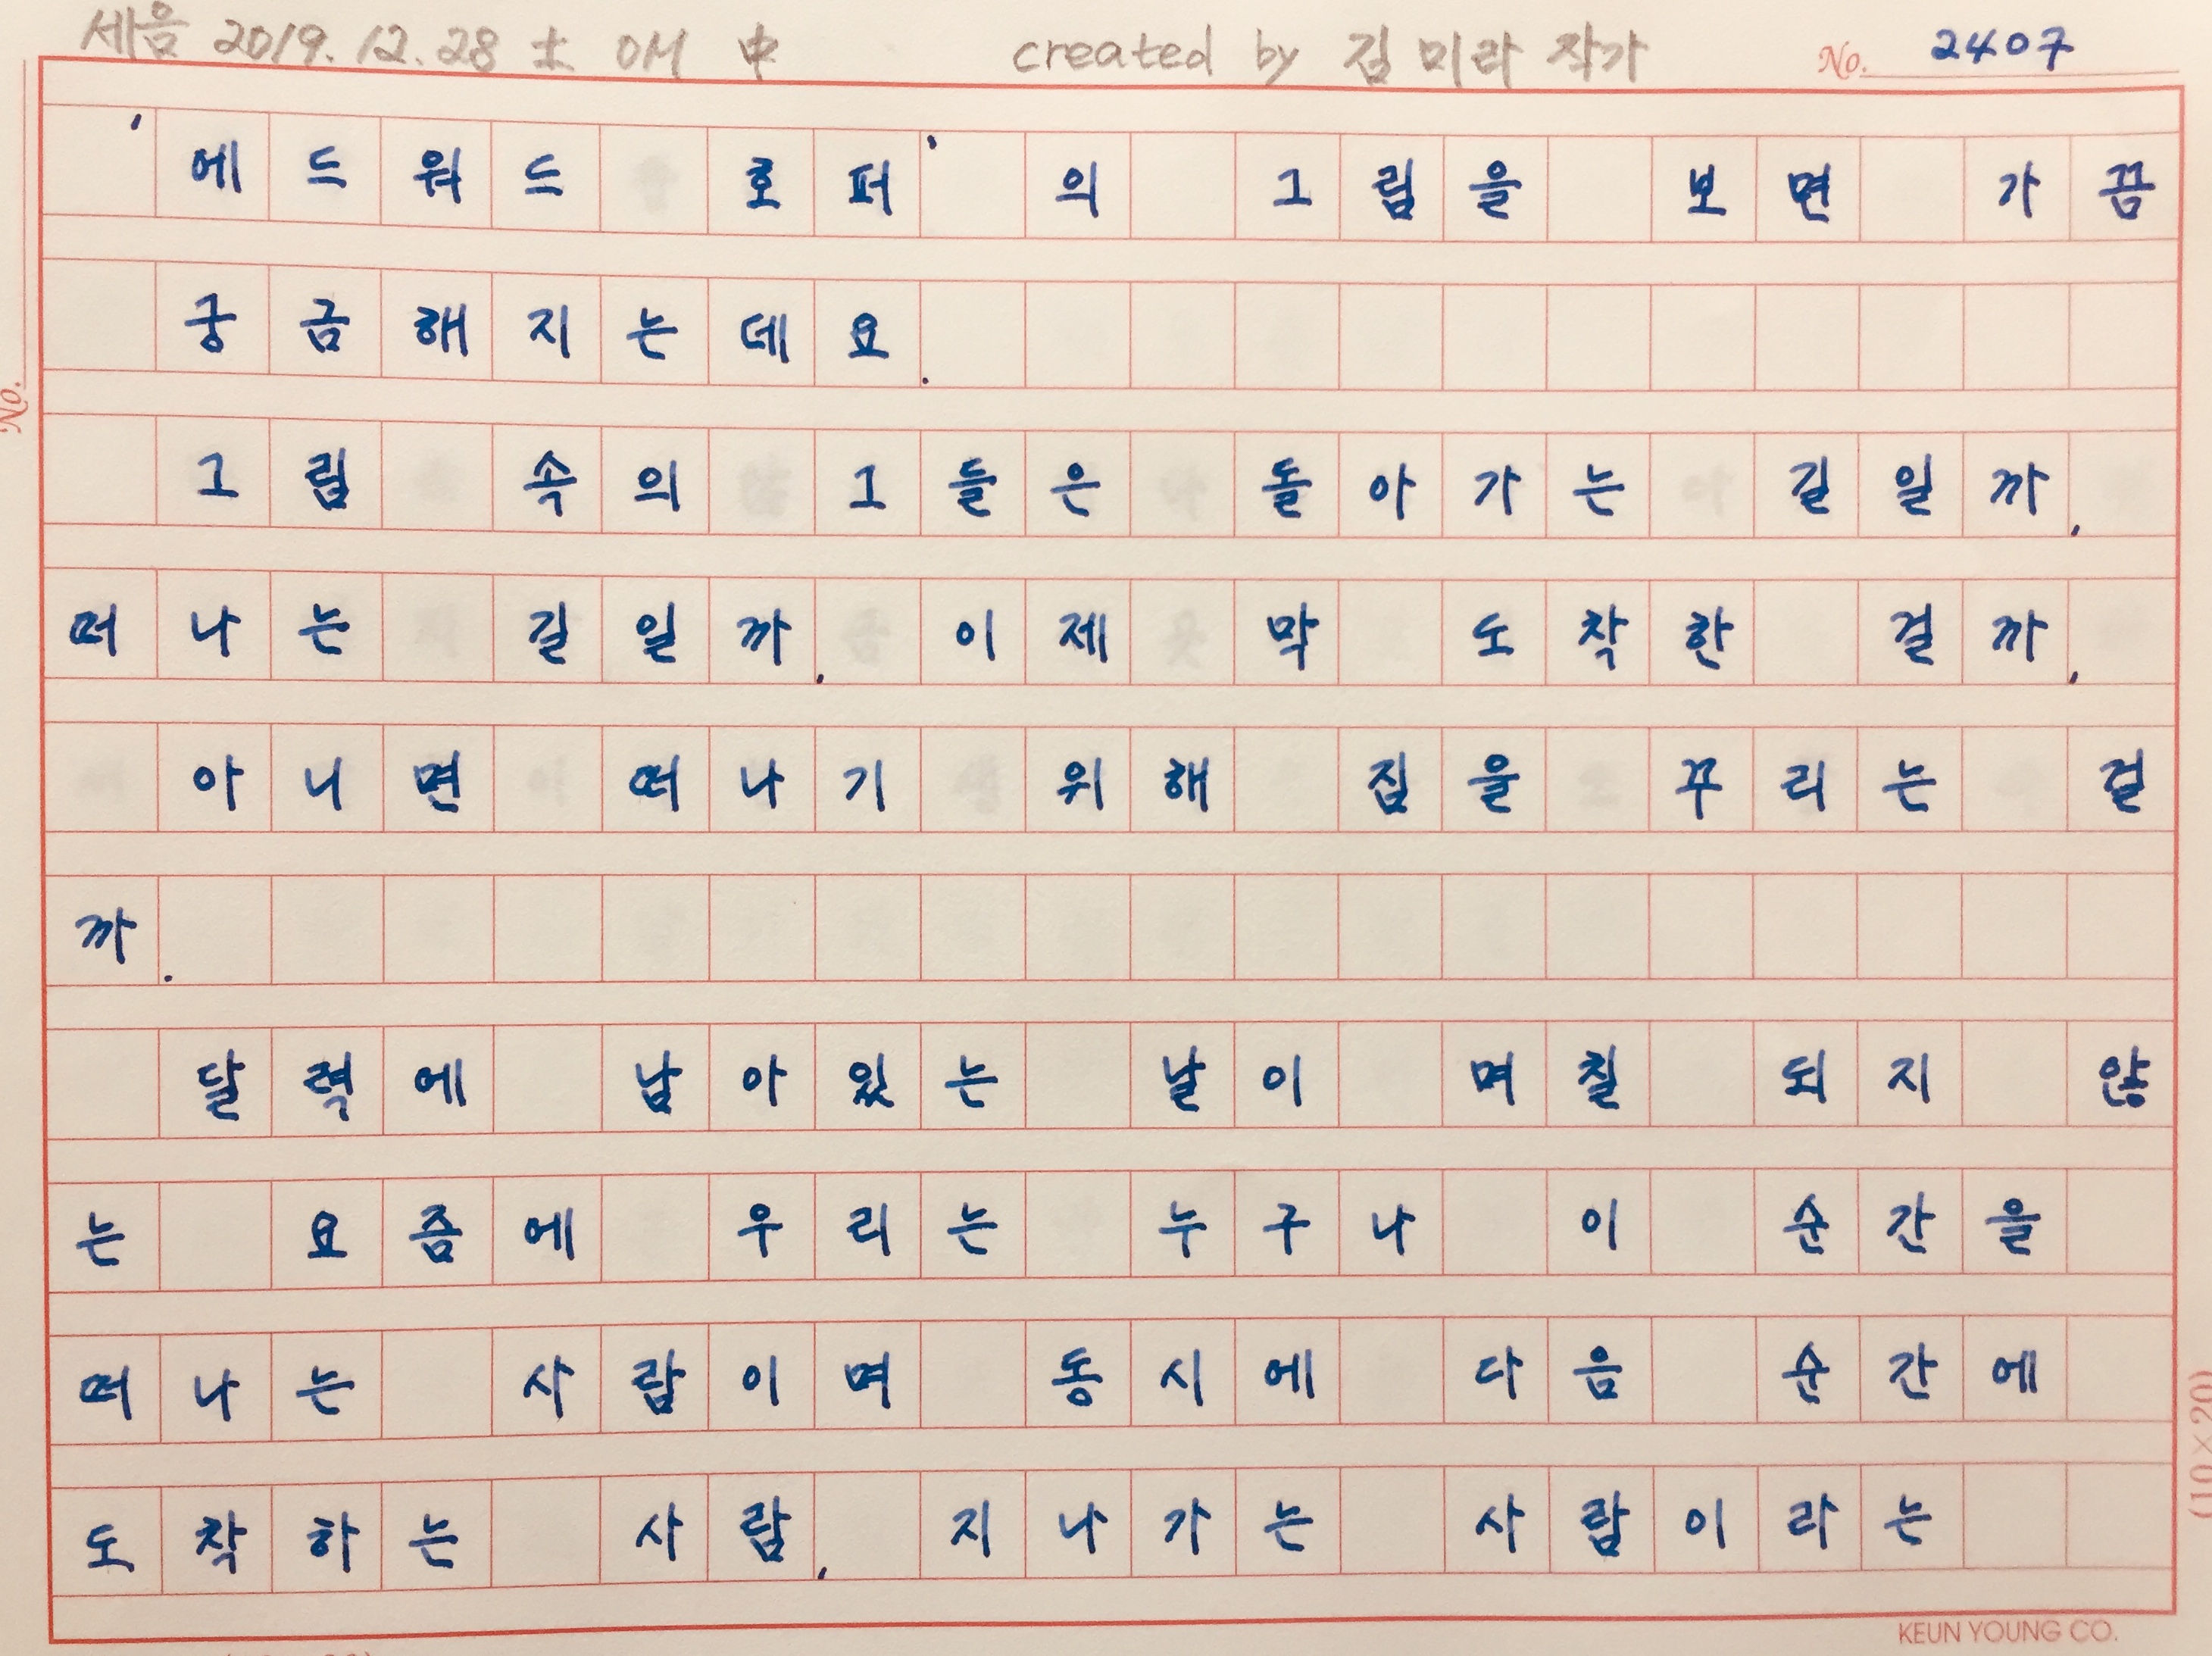 세음 2019. 12. 28 土 OM 中 created by 김미라 작가 No. 2407
'에드워드 호퍼'의 그림을 보면 가끔
궁금해지는데요.
그림 속의 그들은 돌아가는 길일까,
떠나는 길일까. 이제 막 도착한 걸까,
아니면 떠나기 위해 짐을 꾸리는 걸
까.
달력에 남아있는 날이 며칠 되지 않
는 요즘에 우리는 누구나 이 순간을
떠나는 사람이며 동시에 다음 순간에
도착하는 사람, 지나가는 사람이라는
No.
(10×20)
KEUN YOUNG CO.